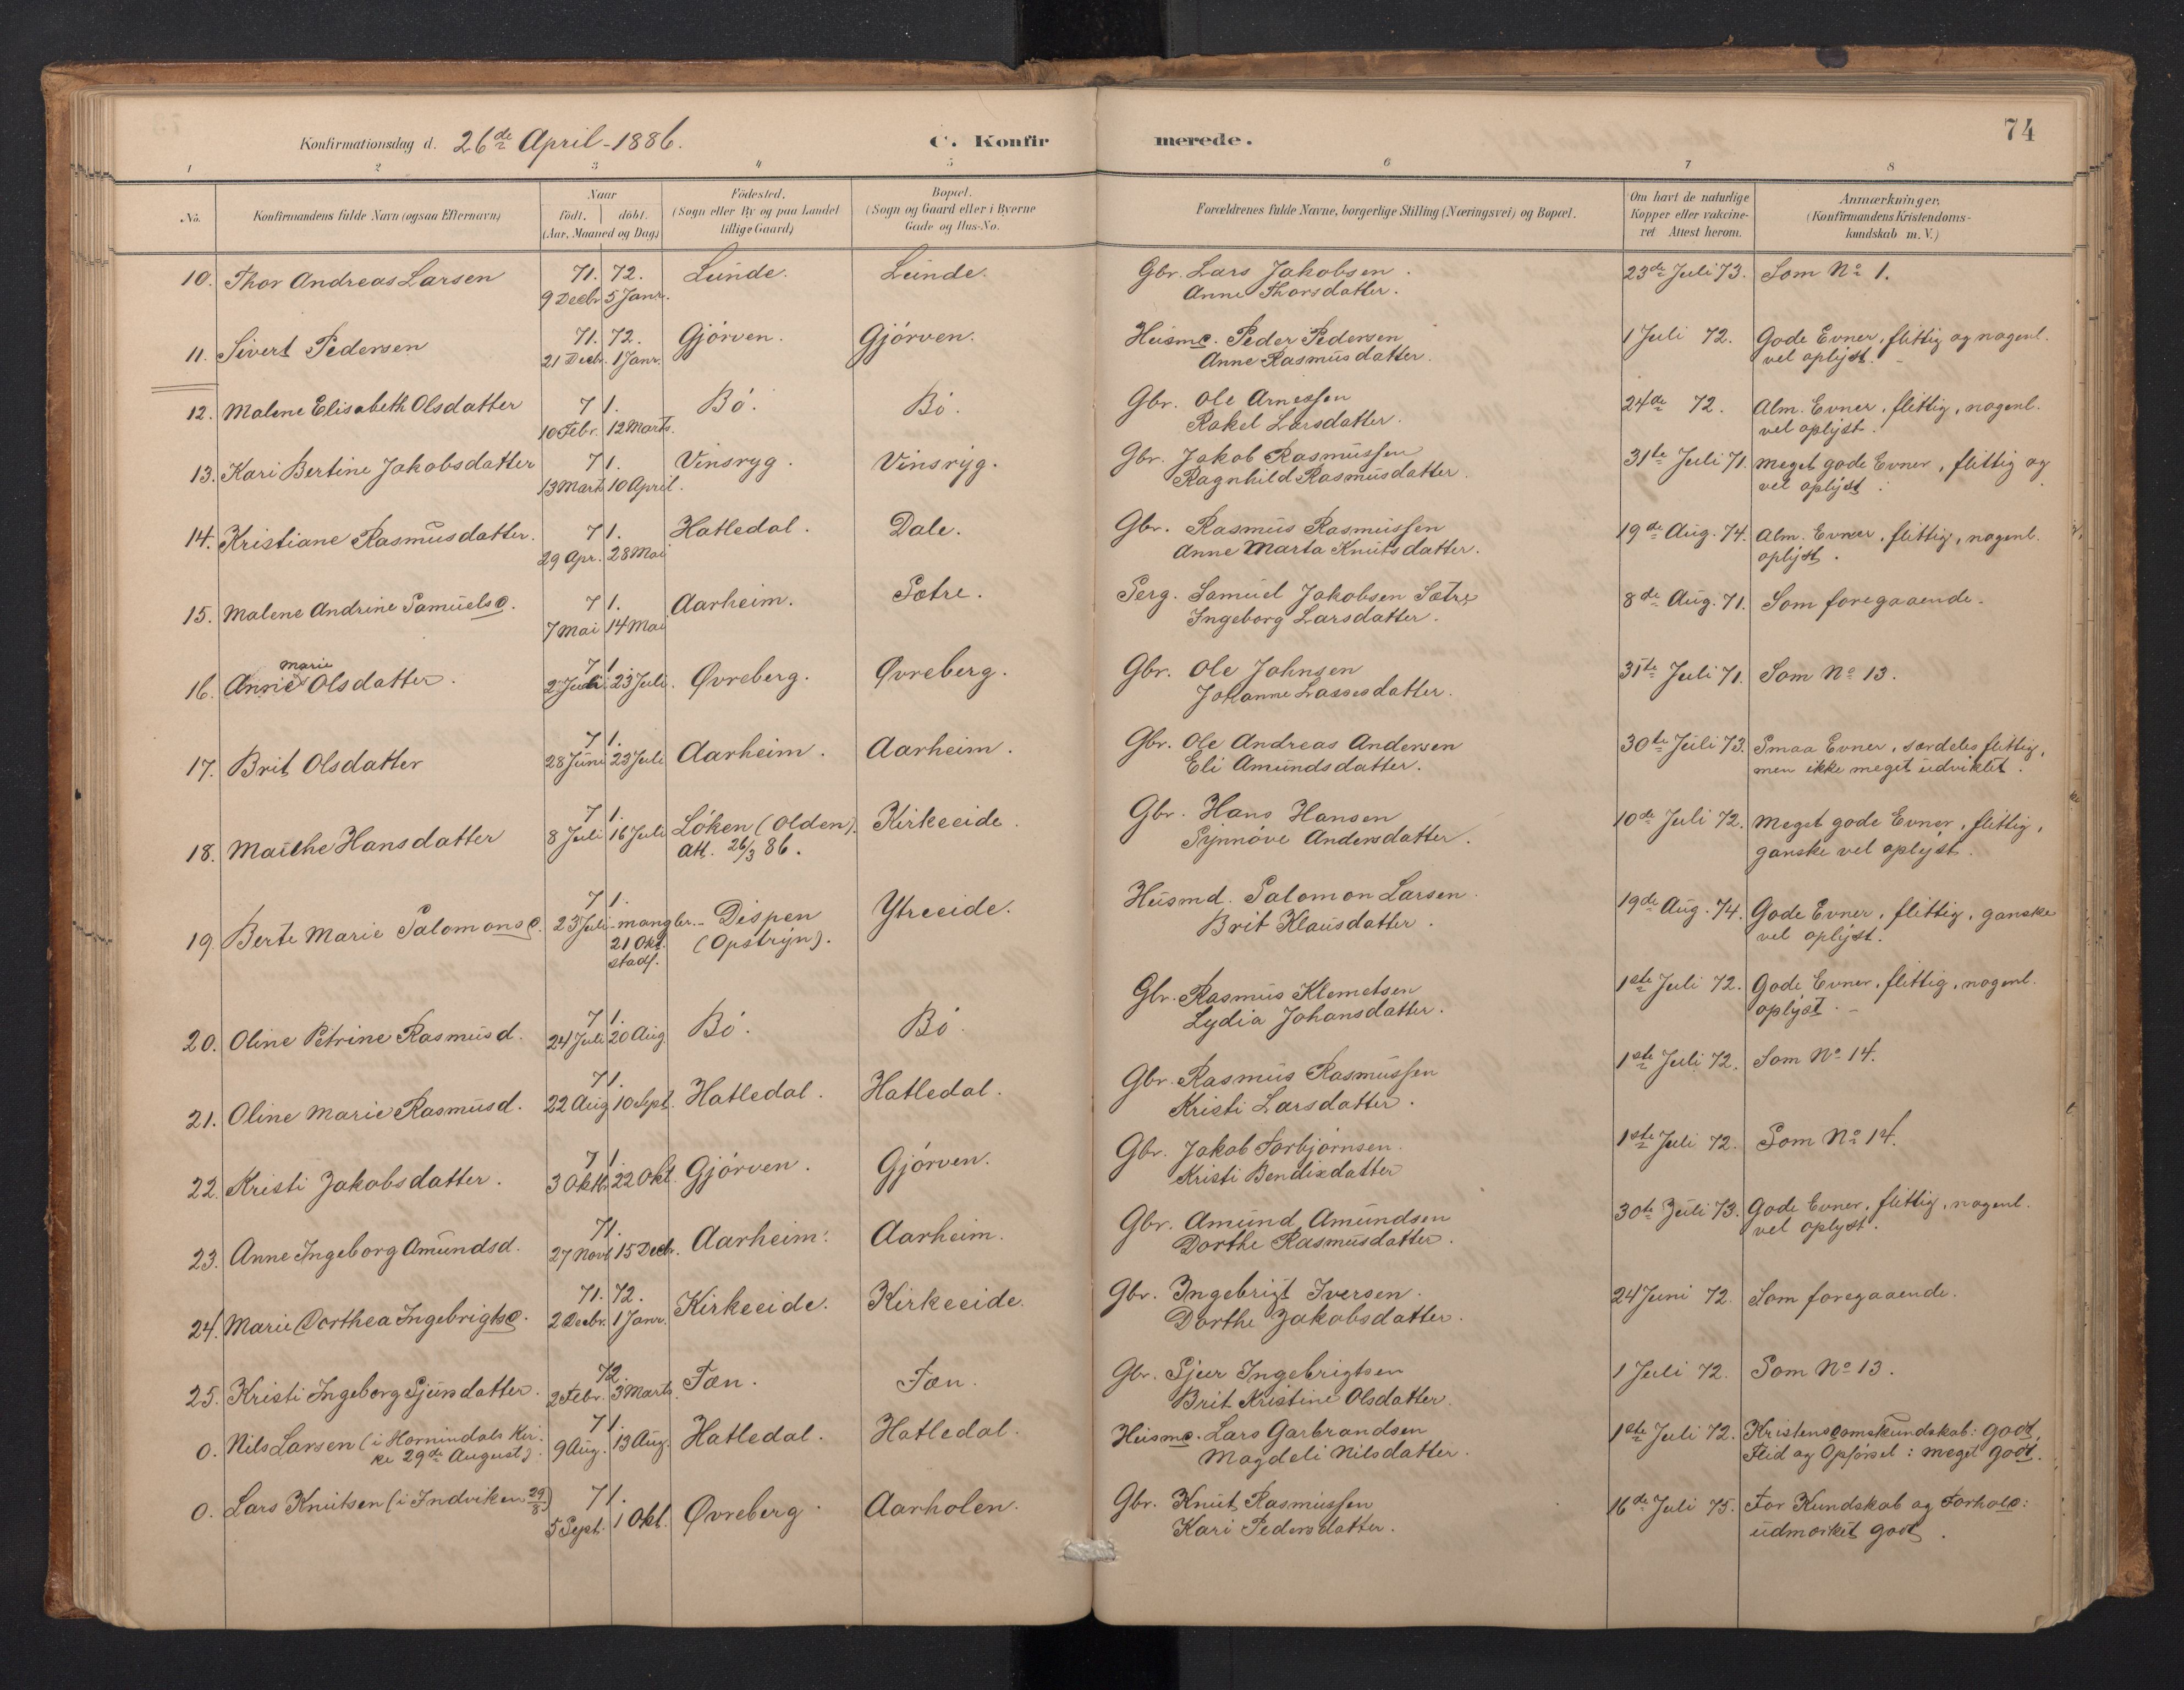 Konfirmationsdag d. 26de April-1886. C. Konfirmerede. 74
1 2 3 4 5 6 7 8
No. Konfirmandens fulde Navn (ogsaa Efternavn) Naar födt. döbt. (Aar, Maaned og Dag) Födested. (Sogn eller By og paa Landet tillige Gaard) Bopæl. (Sogn og Gaard eller i Byerne Gade og Hus-No. Forældrenes fulde Navne, borgerlige Stilling (Næringsvei) og Bopæl. Om havt de naturlige Kopper eller vakcineret Attest herom. Anmærkninger. (Konfirmandens Kristendomskundskab m. V.)
10. Thor Andreas Larsen 71. 72. Lunde. Lunde. Gbr. Lars Jakobsen. 23de Juli 73. Som No 1.
9 Decbr. 5 Janr. Anne Thorsdatter.
11. Sivert Pedersen 71. 72. Gjörven. Gjörven. Husmd. Peder Pedersen 1 Juli 72. Gode Evner, flittig og nogenl.
21 Decbr. 1 Janr. Anne Rasmusdatter. vel oplyst.
12. Malene Elisabeth Olsdatter 71. Bö. Bö. Gbr. Ole Arnessen 24de 72. Alm. Evner, flittig, nogenl.
10 Febr. 12 Marts. Rakel Larsdatter. vel oplyst.
13. Kari Bertine Jakobsdatter 71. Vinsryg. Vinsryg. Gbr. Jakob Rasmussen 31te Juli 71. Meget gode Evner, flittig og
13 Marts 10 April. Ragnhild Rasmusdatter. vel oplyst.
14. Kristiane Rasmusdatter. 71. Hatledal. Dale. Gbr. Rasmus Rasmussen 19de Aug. 74. Alm. Evner, flittig, nogenl.
29 Apr. 28 Mai Anne Marta Knutsdatter. oplyst.
15. Malene Andrine Samuelsd. 71. Aarheim. Sætre. Serg. Samuel Jakobsen Sætre 8de Aug. 71. Som foregaaende.
7 Mai 14 Mai Ingeborg Larsdatter.
16. Anne Marie Olsdatter. 71. Øvreberg. Øvreberg. Gbr. Ole Johnsen 31te Juli 71. Som No 13.
2 Juli 23 Juli. Johanne Lassesdatter.
17. Brit Olsdatter 71. Aarheim. Aarheim. Gbr. Ole Andreas Andersen 30te Juli 73. Smaa Evner, særdeles flittig,
28 Juni 23 Juli Eli Amundsdatter. men ikke meget udviklet.
18. Mathe Hansdatter 71. Löken (Olden). Kirkeeide. Gbr. Hans Hansen 10de Juli 72. Meget gode Evner, flittig,
8 Juli 16 Juli Att. 26/3 86. Synnöve Andersdatter. ganske vel oplyst.
19. Berte Marie Salomonsd. 71. Dispen Ytreeide. Husmd. Salomon Larsen 19de Aug. 74. Gode Evner, flittig, ganske
23 Juli - mangler. - (Opstryn). Brit Klausdatter. vel oplyst.
21 Okt.
stadf.
20. Oline Petrine Rasmusd. 71. Bö. Bö. Gbr. Rasmus Klemetsen 1ste Juli 72. Gode Evner, flittig, nogenl.
24 Juli 20 Aug. Lydia Johansdatter. oplyst.
21. Oline Marie Rasmusd. 71. Hatledal. Hatledal. Gbr. Rasmus Rasmussen 1ste Juli 72. Som No 14.
22 Aug. 10 Sept. Kristi Larsdatter.
22. Kristi Jakobsdatter. 71. Gjörven. Gjörven. Gbr. Jakob Torbjörnsen. 1ste Juli 72. Som No 14.
3 Oktb. 22 Okt. Kristi Bendixdatter
23. Anne Ingeborg Amundsd. 71. Aarheim. Aarheim. Gbr. Amund Amundsen 30te Juli 73. Gode Evner, flittig, nogenl.
27 Novb. 15 Decbr. Dorthe Rasmusdatter. vel oplyst.
24. Marie Dorthea Ingebrigtsd. 71. 72. Kirkeeide. Kirkeeide. Gbr. Ingebrigt Iversen. 24 Juni 72. Som foregaaende.
2 Decbr. 1 Janr. Dorthe Jakobsdatter.
25. Kristi Ingeborg Sjursdatter. 72. Tæn. Tæn. Gbr. Sjur Ingebrigtsen 1 Juli 72. Som No 13.
2 Febr. 3 Marts. Brit Kristine Olsdatter.
0. Nils Larsen (i Hornindals Kir- 71. Hatledal. Hatledal. Husmd. Lars Garbrandsen 1ste Juli 72. Kristendomskundskab: godt,
ke 29de August). 9 Aug. 13 Aug. Magdeli Nilsdatter. Flid og Opförsel: meget godt.
0. Lars Knutsen (i Indviken 29/8) 71. Øvreberg. Aarholen. Gbr. Knut Rasmussen 16de Juli 75. For Kundskab og Forhold:
5 Sept. 1 Okt. Kari Pedersdatter. udmærket godt.